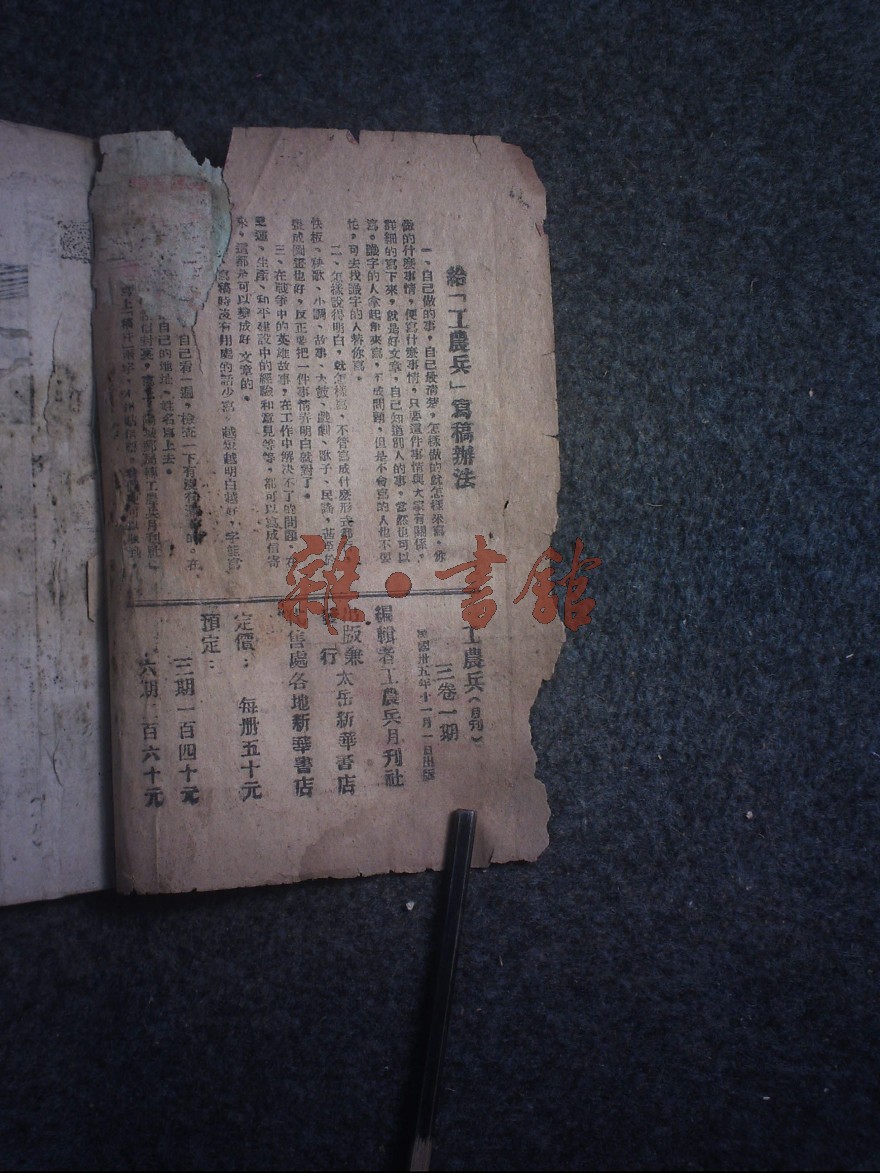 給「工農兵」寫稿辦法
一、自己做的事，自己最清楚，怎樣做的就怎樣來寫，你
做的什麽事情，便寫什麽事情，只要這件事情與大家有關係。
詳細的寫下來，就是好文章，自己知道別人的事，當然也可以
寫。識字的人拿起筆來寫，不成問題，但是不會寫的人也不要
怕，可去找識字的人替你寫。
二、怎樣說得明白，就怎樣寫，不管寫成什麽形式都
快板、秧歌、小調、故事、大鼓、戲劇、歌子、民謠，甚至於
變成圖畫也好，反正要把一件事情弄明白就對了。
三、在戰爭中的英雄故事，在工作中解決不了的問題，在
運、生產、和平建設中的經驗和意見等等，都可以寫成信寄
來，這都是可以變成好文章的。
寫稿時沒有用處的話少寫，越短越明白越好，字能寫
自己看一遍，檢查一下有沒有
的。在
自己的地址、姓名寫上去。
工農兵月刊社」
工農兵（月刊）
三卷一期
民國卅五年十一月一日出版
編輯者工農兵月刊社
出版兼
發行
太岳新華書店
售處各地新華書店
定價：每册五十元
預定：
三期一百四十元
六期二百六十元
雜·書館